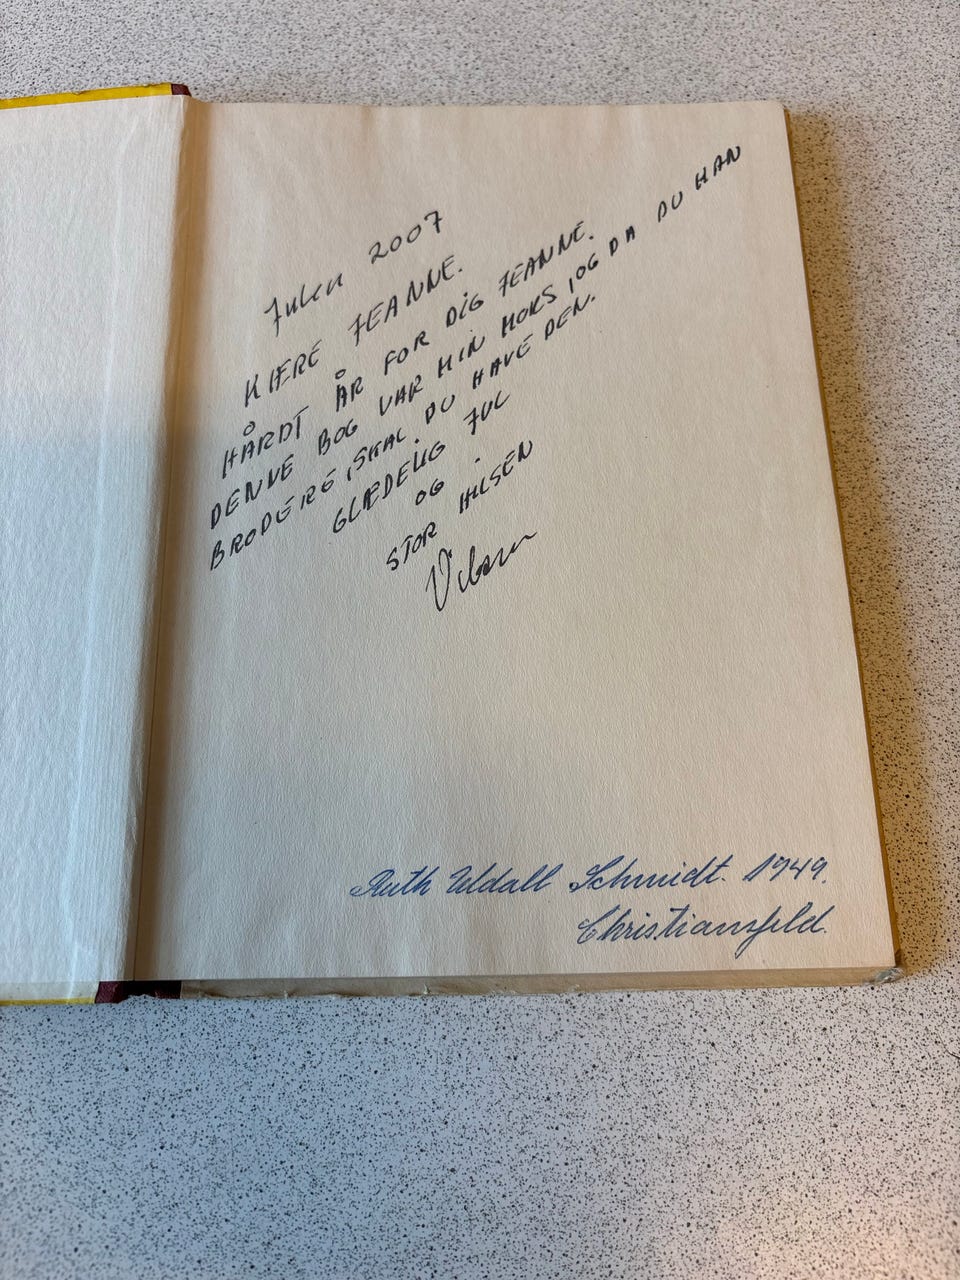 Julen 2007
KÆRE JEANNE.
HÅRDT ÅR FOR DIG JEANNE.
DENNE BOG VAR MIN MORS, OG DA DU KAN
BRODERE, SKAL DU HAVE DEN.
GLÆDELIG JUL
OG
STOR HILSEN
Ruth Uldall Schmidt. 1949.
Christiansfeld.